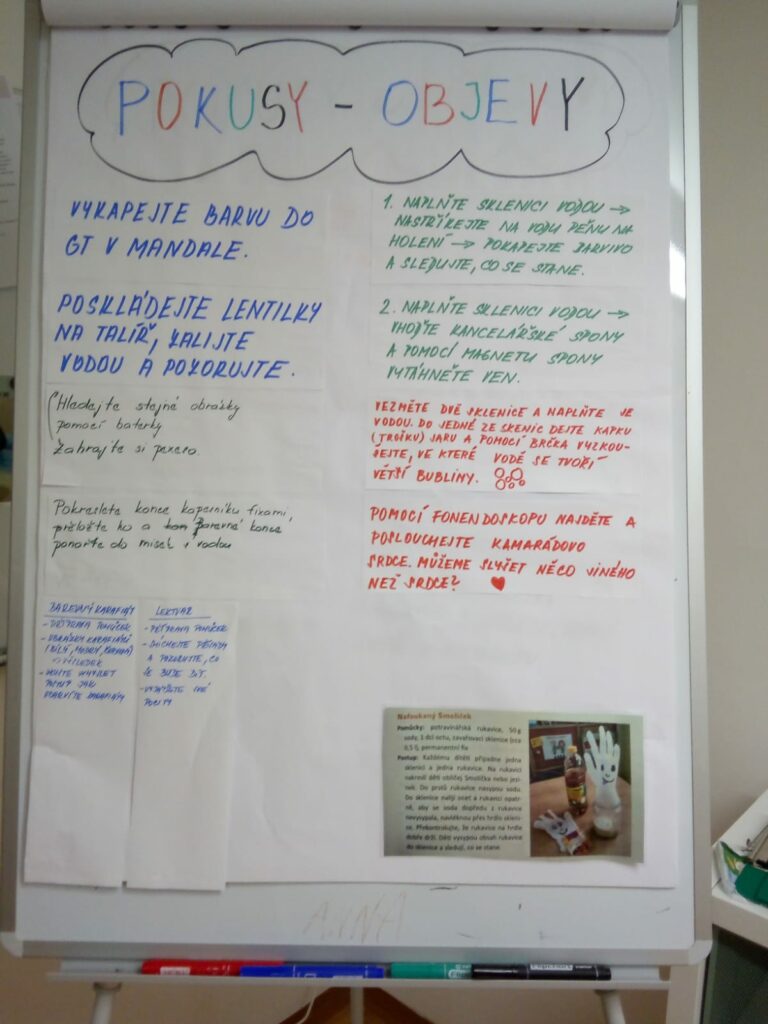 POKUSY - OBJEVY
VYKAPEJTE BARVU DO
GT V MANDALE.
POSKLÁDEJTE LENTILKY
NA TALÍŘ, ZALIJTE
VODOU A POZORUJTE.
Hledejte stejné obrázky
pomocí baterky
Zahrajte si pexeso.
Pokreslete konce kapesníku fixami,
přeložte ho a barevné konce
ponořte do misek s vodou
BAREVNÝ KARAFIÁT
- PŘÍPRAVA POMŮCEK
- OBRÁZKY KARAFIÁTŮ
(BÍLÝ, MODRÝ,
VÝSLEDEK
POSTUP JAK
LEKTVAR
- PŘÍPRAVA POMŮCEK
A POZORUJTE, CO
SE BUDE DÍT.
POCITY
1. NAPLŇTE SKLENICI VODOU →
NASTŘÍKEJTE NA VODU PĚNU NA
HOLENÍ → POKAPEJTE BARVIVO
A SLEDUJTE, CO SE STANE.
2. NAPLŇTE SKLENICI VODOU →
VHOĎTE KANCELÁŘSKÉ SPONY
A POMOCÍ MAGNETU SPONY
VYTÁHNĚTE VEN.
VEZMĚTE DVĚ SKLENICE A NAPLŇTE JE
VODOU. DO JEDNÉ ZE SKENIC DEJTE KAPKU
(TROŠKU) JARU A POMOCÍ BRČKA VYZKOU-
ŠEJTE, VE KTERÉ VODĚ SE TVOŘÍ
VĚTŠÍ BUBLINY.
POMOCÍ FONENDOSKOPU NAJDĚTE A
POSLOUCHEJTE KAMARÁDOVO
SRDCE. MŮŽEME SLYŠET NĚCO JINÉHO
NEŽ SRDCE?
Nafoukaný Smolíček
Pomůcky: potravinářská rukavice, 50 g
sody, 1 dcl octu, zavařovací sklenice (cca
0,5 l), permanentní fix
Postup: Každému dítěti připadne jedna
sklenice a jedna rukavice. Na rukavici
nakreslí děti obličej Smolíčka nebo jezi-
nek. Do prstů rukavice nasypou sodu.
Do sklenice nalijí ocet a rukavici opatr-
ně, aby se soda dopředu z rukavice
nevysypala, navléknou přes hrdlo skleni-
ce. Překontrolujte, že rukavice na hrdle
dobře drží. Děti vysypou obsah rukavice
do sklenice a sledují, co se stane.